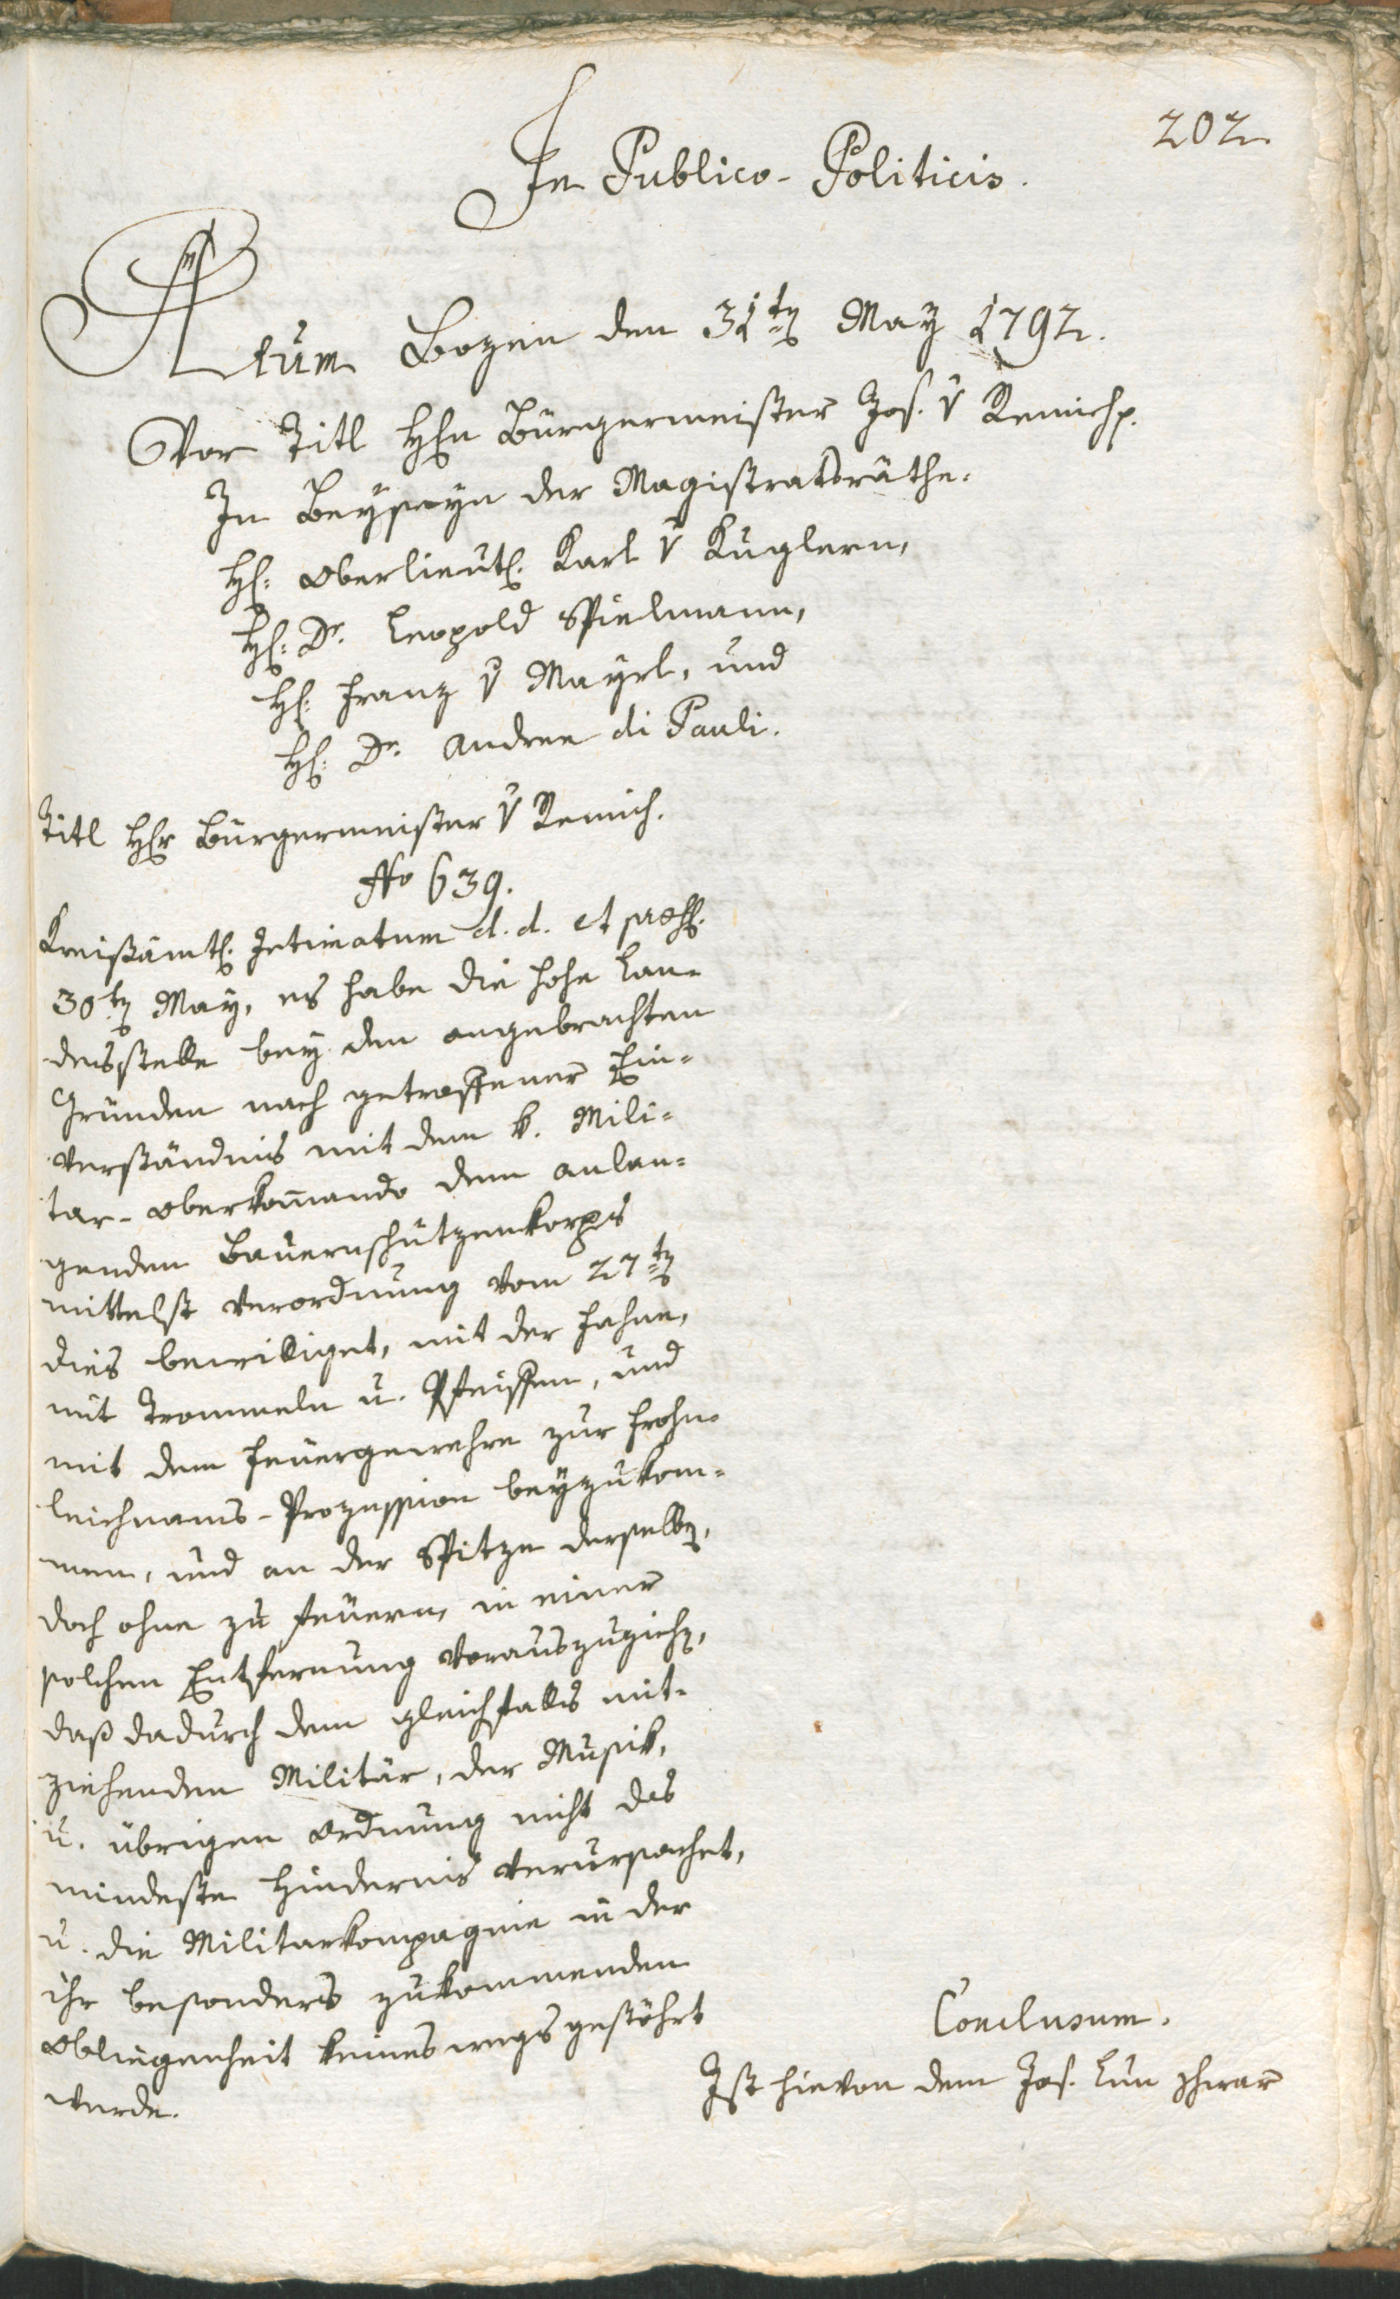 202
In Publico-Politicis.
Actum Bozen den 31ten May 1792.
Vor Titl Hℓn Bürgermeister Jos. v Remich.
In Beyseyn der Magistratsräthe.
H: Oberlieut. Karl v Kuglern,
H: Dr. Leopold Spielmann,
H: Franz v Mayrl, und
H: Dr. Andree di Pauli.
Titl Hr Bürgermeister v Remich.
No 639.
Kreisämtl. Intimatum d. d. et praes.
30ten May, es habe die hohe Lan-
desstelle bey den angebrachten
Gründen nach getroffener Ein-
verständnis mit dem k. Mili-
tar-Oberkom̄ando dem anlan-
genden Bauernschützenkorps
mittelst Verordnung vom 27ten
dies bewilliget, mit der Fahne,
mit Trommeln u. Pfeiffen, und
mit dem Feuergewehre zur Frohn-
leichnams-Prozession beyzukom-
men, und an der Spitze derselben,
doch ohne zu feuern, in einer
solchen Entfernung vorauszuziehen,
daß dadurch dem gleichfalls mit-
ziehenden Militär, der Musik,
u. übrigen Ordnung nicht das
mindeste Hindernis verursachet,
u. die Militarkompagnie in der
ihr besonders zukommenden
Obliegenheit keineswegs gestöhrt
werde.
Conclusum.
Ist hievon dem Jos. Lun